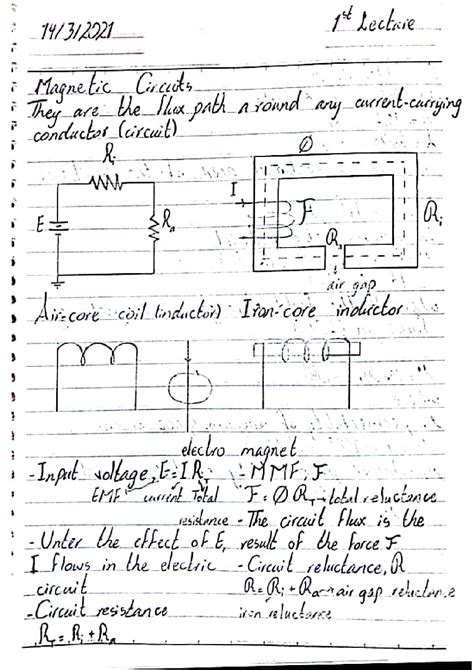 14/3/2021
1st Lecture
Magnetic Circuits
They are the flux path around any current-carrying
conductor (circuit)
Ri
E
Ra
Ø
I
F
Ra
Ri
air gap
Air-core coil (inductor) Iron-core inductor
electro magnet
- Input voltage, E = I RT
EMF current Total
resistance
- Unter the effect of E,
I flows in the electric
circuit
- Circuit resistance
RT = Ri + Ra
- MMF, F
F = Ø RT → total reluctance
- The circuit flux is the
result of the force F
- Circuit reluctance, R
R = Ri + Ra → air gap reluctance
iron reluctance